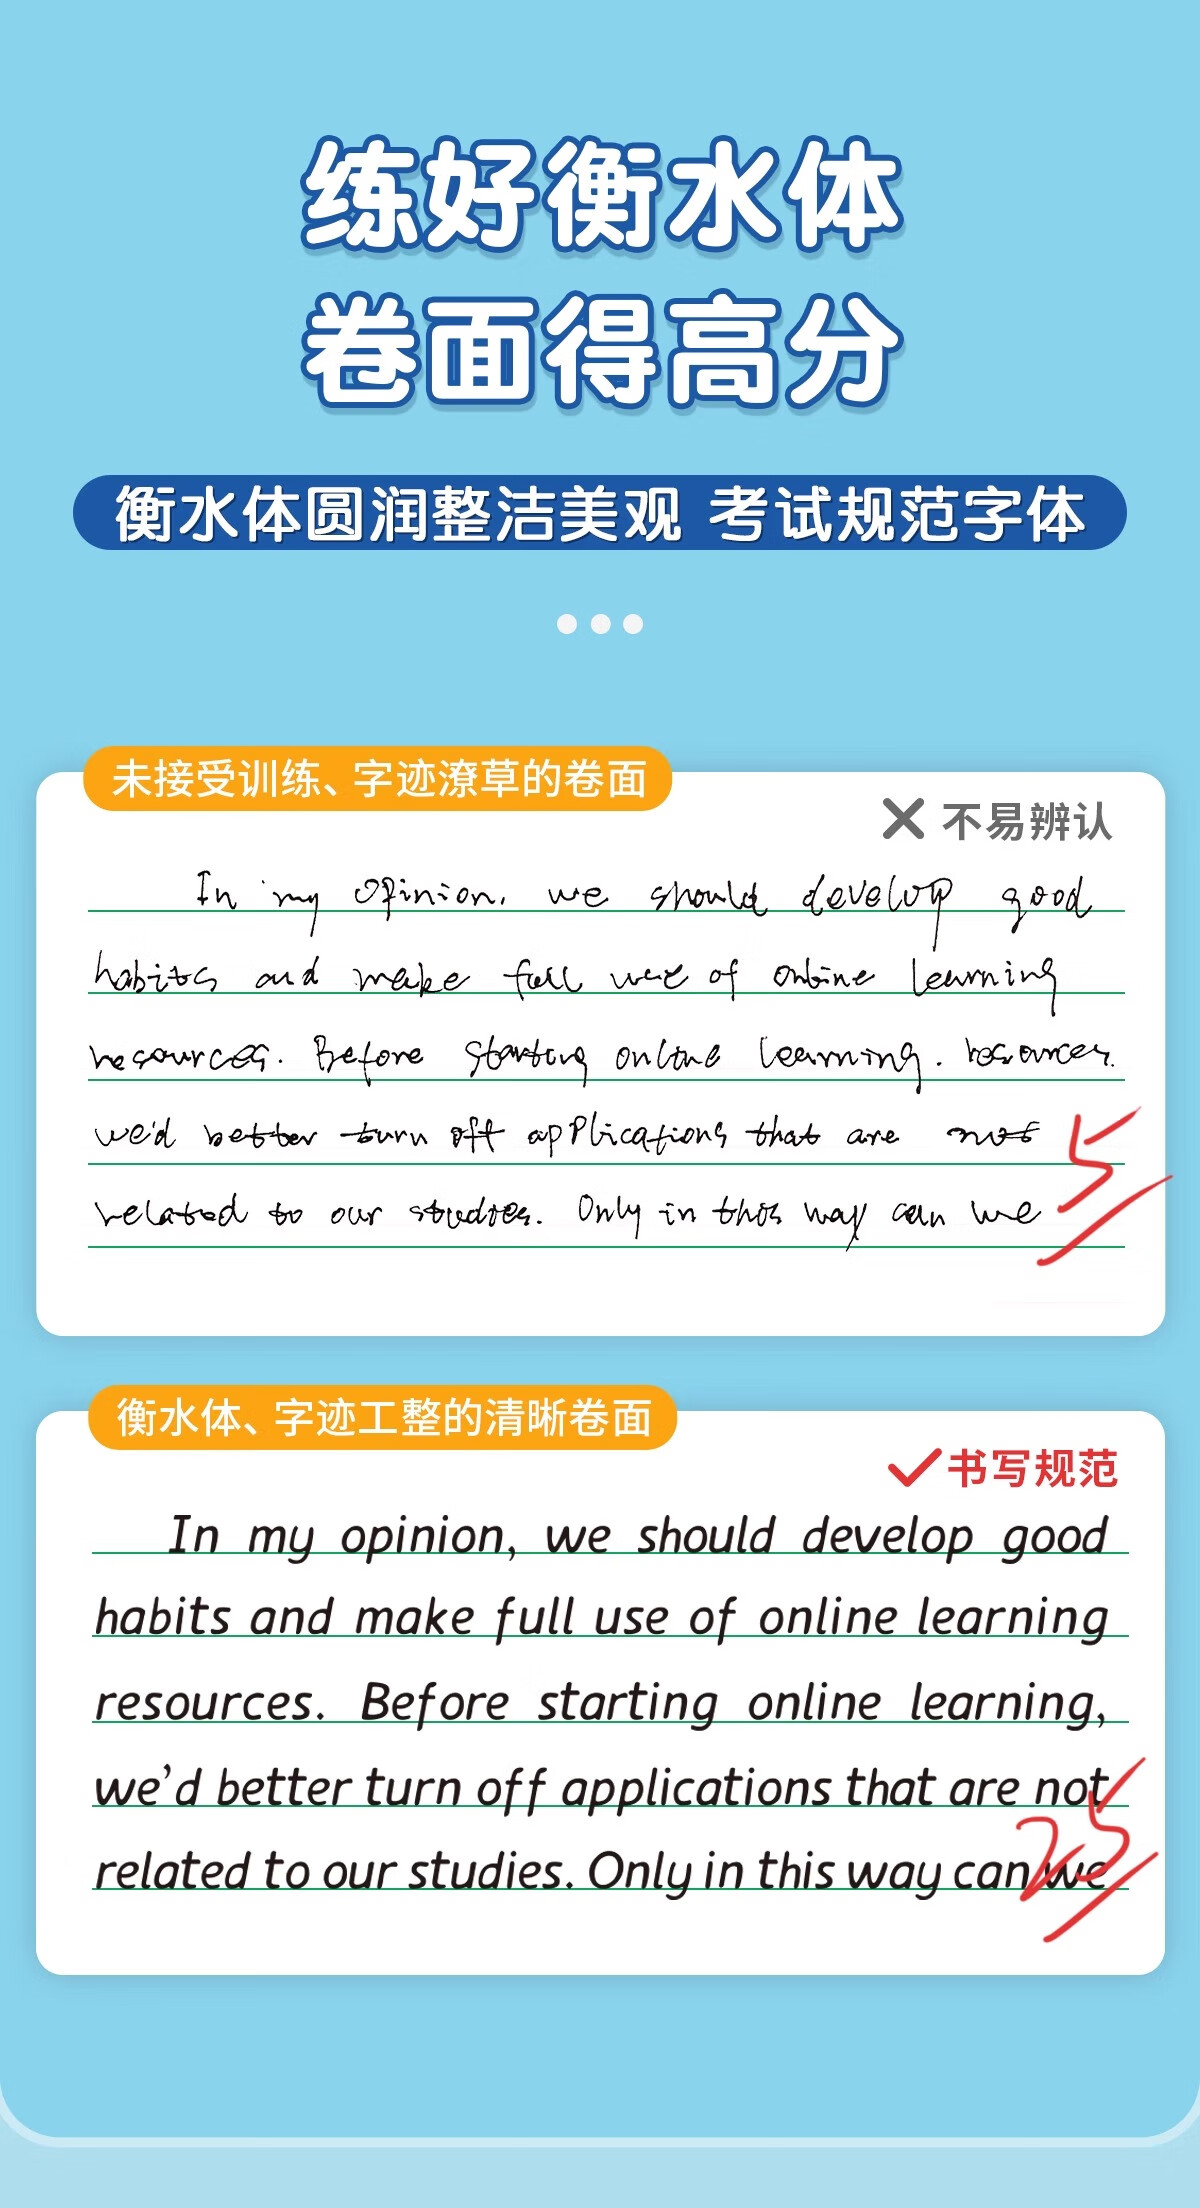 练好衡水体
卷面得高分
衡水体圆润整洁美观 考试规范字体
未接受训练、字迹潦草的卷面
不易辨认
In my opinion. we should develop good
habits and make full use of online learning
resources. Before starting online learning. resources.
we'd better turn off applications that are not
related to our studies. Only in this way can we
5
衡水体、字迹工整的清晰卷面
书写规范
In my opinion, we should develop good
habits and make full use of online learning
resources. Before starting online learning,
we'd better turn off applications that are not
related to our studies. Only in this way can we
25